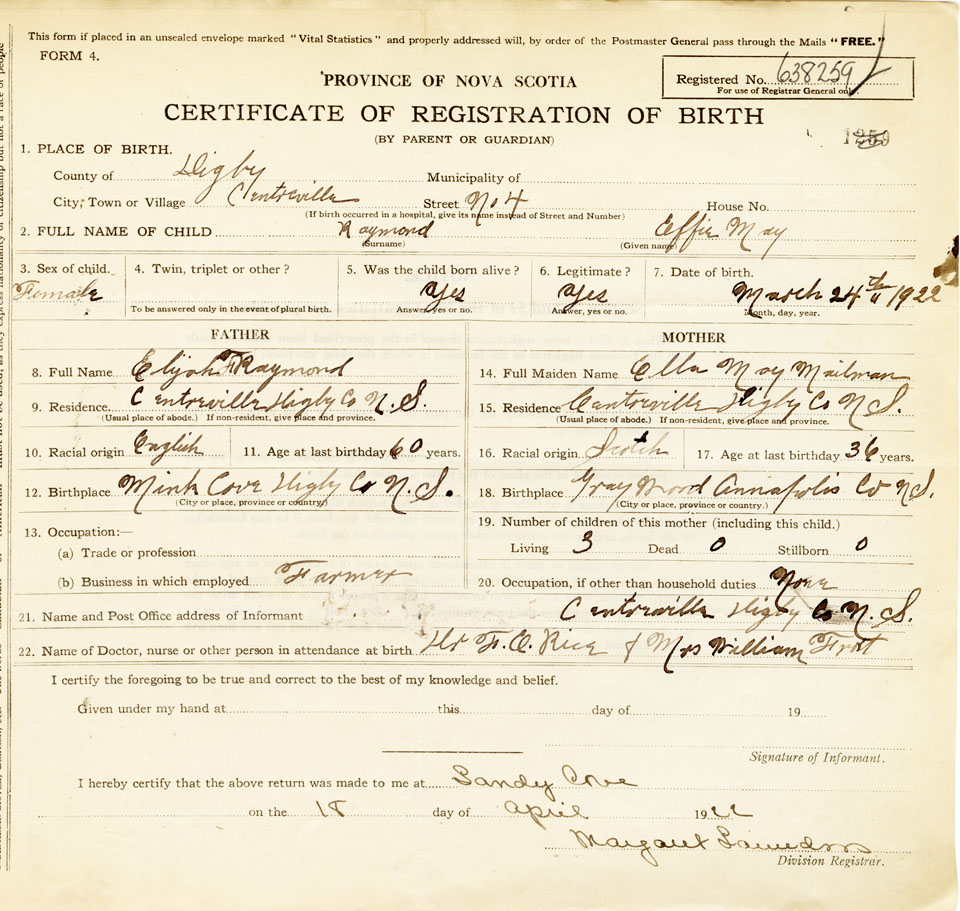 This form if placed in an unsealed envelope marked "Vital Statistics" and properly addressed will, by order of the Postmaster General pass through the Mails "FREE."
FORM 4.
PROVINCE OF NOVA SCOTIA
Registered No. 638259
For use of Registrar General only.
CERTIFICATE OF REGISTRATION OF BIRTH
(BY PARENT OR GUARDIAN)
1. PLACE OF BIRTH.
County of Digby Municipality of
City, Town or Village Centreville Street No 4 House No.
(If birth occurred in a hospital, give its name instead of Street and Number)
2. FULL NAME OF CHILD Raymond Effie May
(Surname) (Given name)
3. Sex of child. 4. Twin, triplet or other? 5. Was the child born alive? 6. Legitimate? 7. Date of birth.
Female Yes Yes March 24th 1922
To be answered only in the event of plural birth. Answer, yes or no. Answer, yes or no. Month, day, year.
FATHER MOTHER
8. Full Name Elijah F Raymond 14. Full Maiden Name Ella May Mailman
9. Residence Centreville Digby Co N.S. 15. Residence Centreville Digby Co N S.
(Usual place of abode.) If non-resident, give place and province. (Usual place of abode.) If non-resident, give place and province.
10. Racial origin English 11. Age at last birthday 60 years. 16. Racial origin Scotch 17. Age at last birthday 36 years.
12. Birthplace Mink Cove Digby Co N.S. 18. Birthplace Gray Wood Annapolis Co N S.
(City or place, province or country) (City or place, province or country.)
13. Occupation:— 19. Number of children of this mother (including this child.)
(a) Trade or profession Living 3 Dead 0 Stillborn 0
(b) Business in which employed Farmer 20. Occupation, if other than household duties None
21. Name and Post Office address of Informant Centreville Digby Co N.S.
22. Name of Doctor, nurse or other person in attendance at birth Dr F.O. Rice & Mrs William
I certify the foregoing to be true and correct to the best of my knowledge and belief.
Given under my hand at this day of 19
Signature of Informant.
I hereby certify that the above return was made to me at Sandy Cove
on the 18 day of April 1922
Margaret Saunders
Division Registrar.